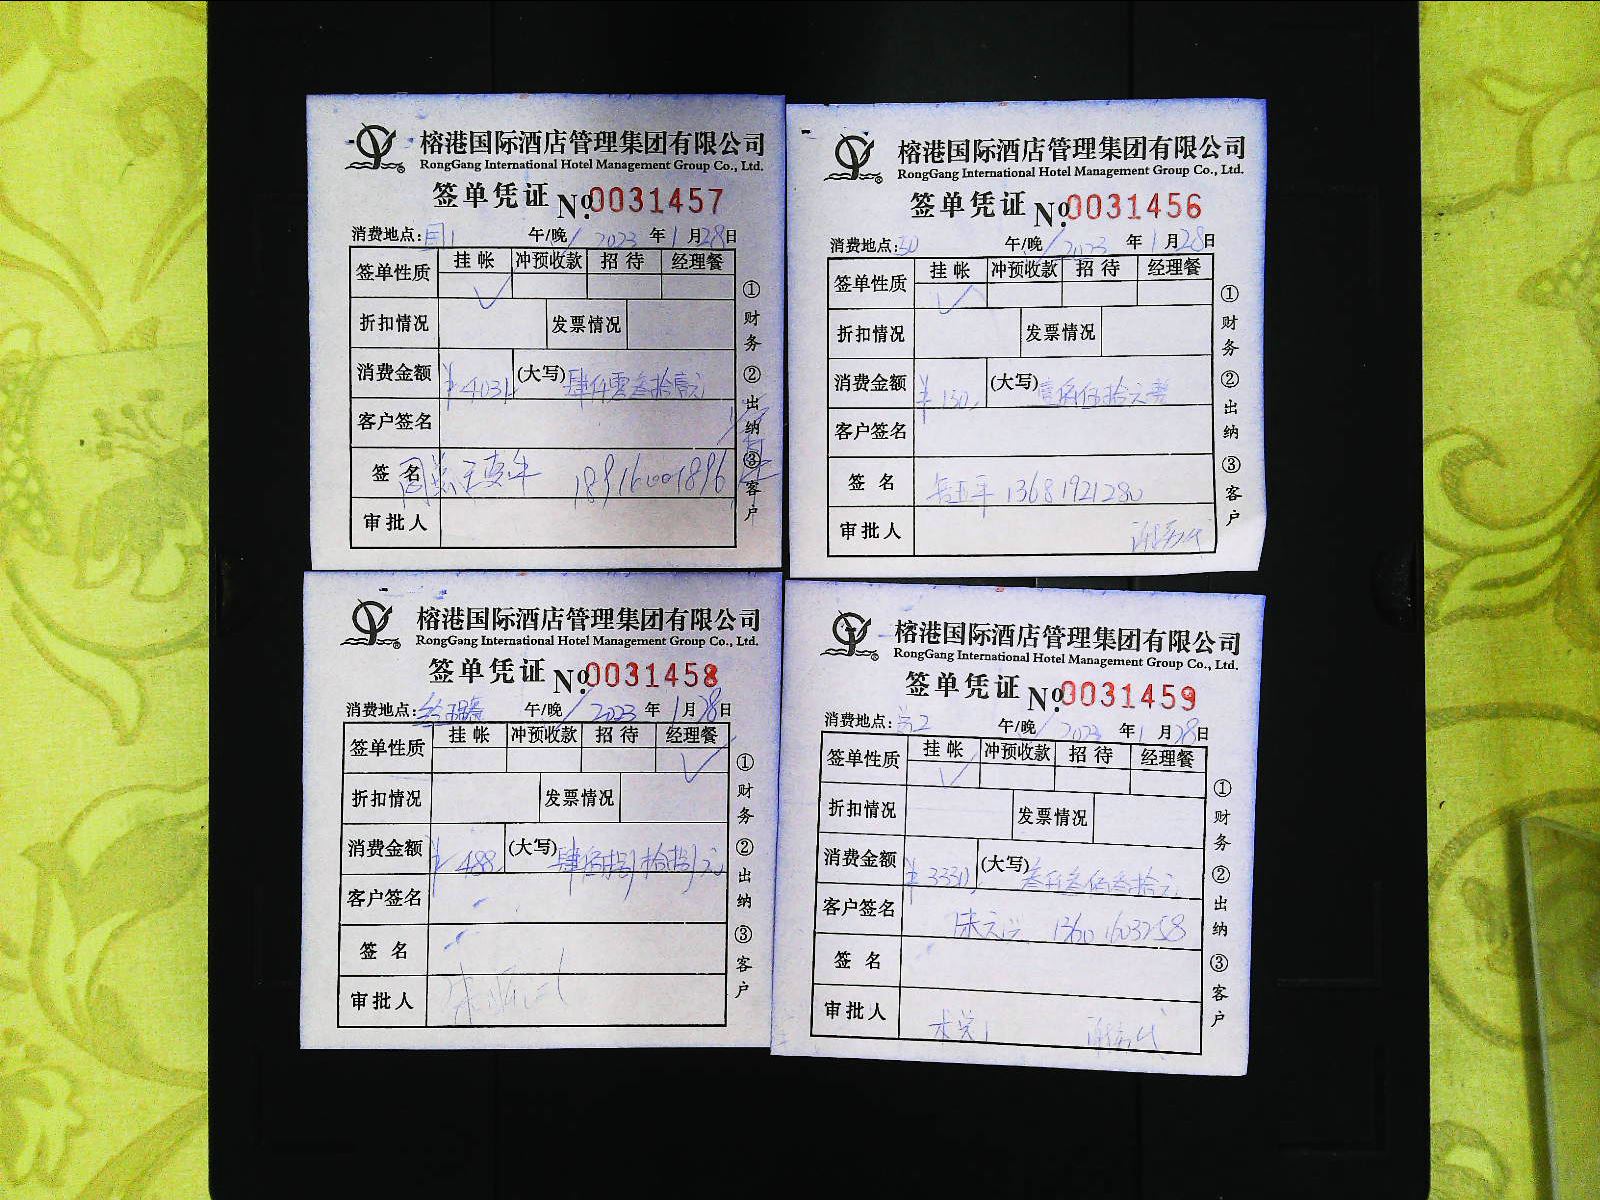 榕港国际酒店管理集团有限公司
RongGang International Hotel Management Group Co., Ltd.
签单凭证 №0031457
消费地点: 午/晚 2023 年 1 月 28 日
签单性质 挂帐 冲预收款 招待 经理餐
折扣情况 发票情况
消费金额 ¥4031 (大写) 肆仟零叁拾壹元
客户签名
签名 18916001896
审批人
①财务 ②出纳 ③客户
榕港国际酒店管理集团有限公司
RongGang International Hotel Management Group Co., Ltd.
签单凭证 №0031456
消费地点: 午/晚 2023 年 1 月 28 日
签单性质 挂帐 冲预收款 招待 经理餐
折扣情况 发票情况
消费金额 ¥150. (大写) 壹佰伍拾元整
客户签名
签名 13681921280
审批人
①财务 ②出纳 ③客户
榕港国际酒店管理集团有限公司
RongGang International Hotel Management Group Co., Ltd.
签单凭证 №0031458
消费地点: 午/晚 2023 年 1 月 28 日
签单性质 挂帐 冲预收款 招待 经理餐
折扣情况 发票情况
消费金额 ¥488. (大写) 肆佰捌拾捌元
客户签名
签名
审批人
①财务 ②出纳 ③客户
榕港国际酒店管理集团有限公司
RongGang International Hotel Management Group Co., Ltd.
签单凭证 №0031459
消费地点: 午/晚 2023 年 1 月 28 日
签单性质 挂帐 冲预收款 招待 经理餐
折扣情况 发票情况
消费金额 ¥3330. (大写) 叁仟叁佰叁拾元
客户签名 13601603258
签名
审批人
①财务 ②出纳 ③客户